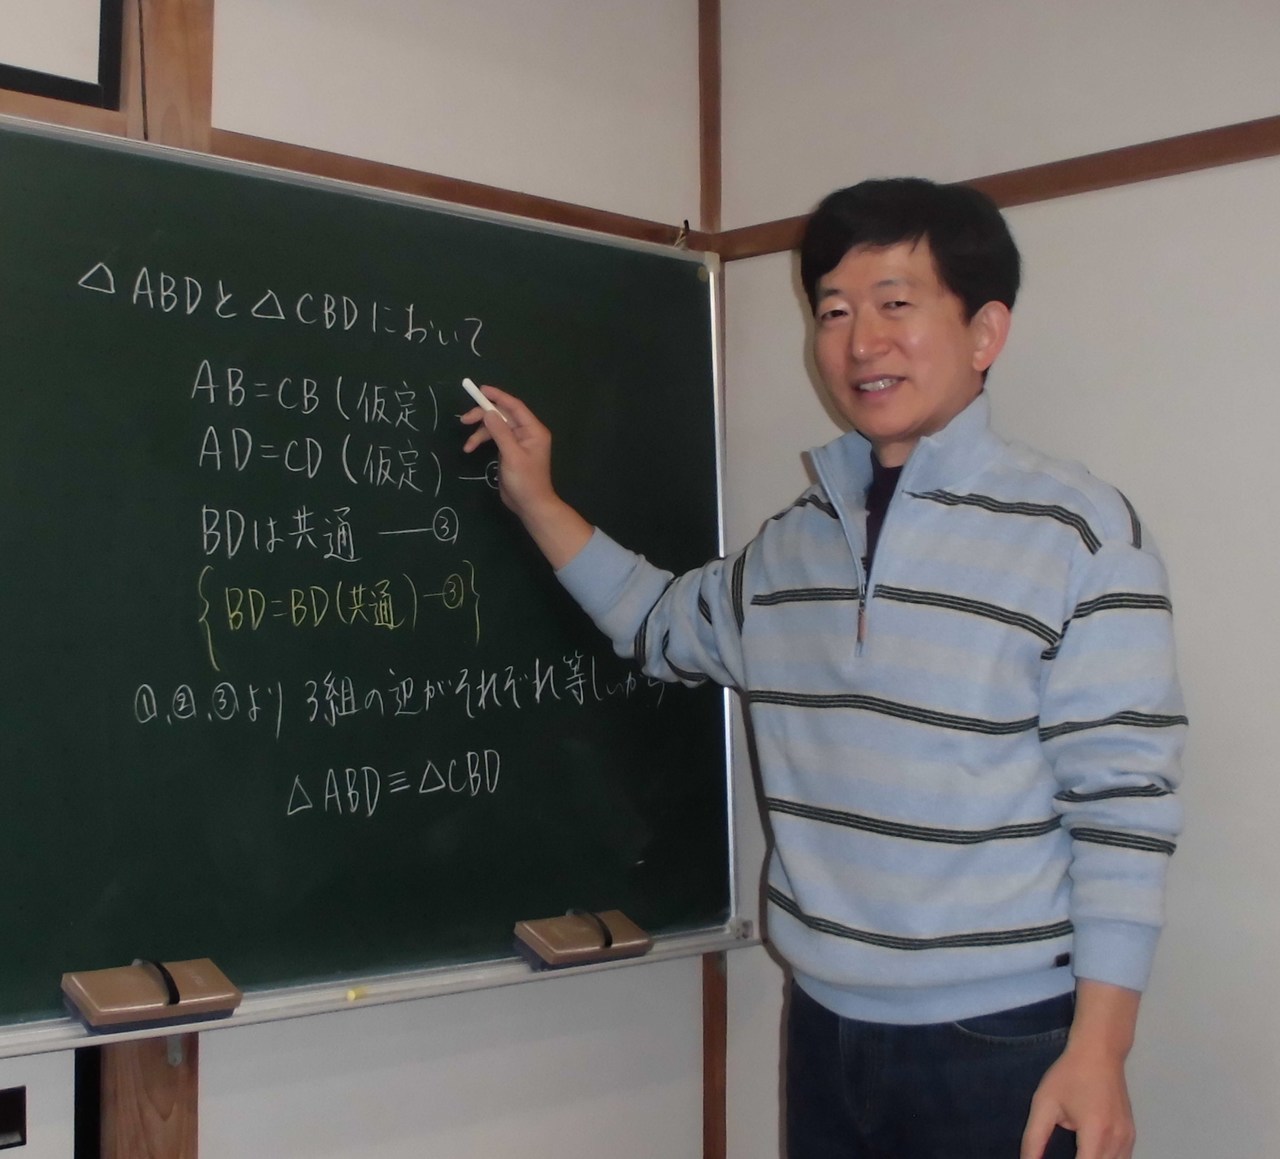 △ABDと△CBDにおいて
AB=CB(仮定)
AD=CD(仮定)—
BDは共通—③
{BD=BD(共通)—③}
①.②.③より 3組の辺がそれぞれ等しいから
△ABD≡△CBD